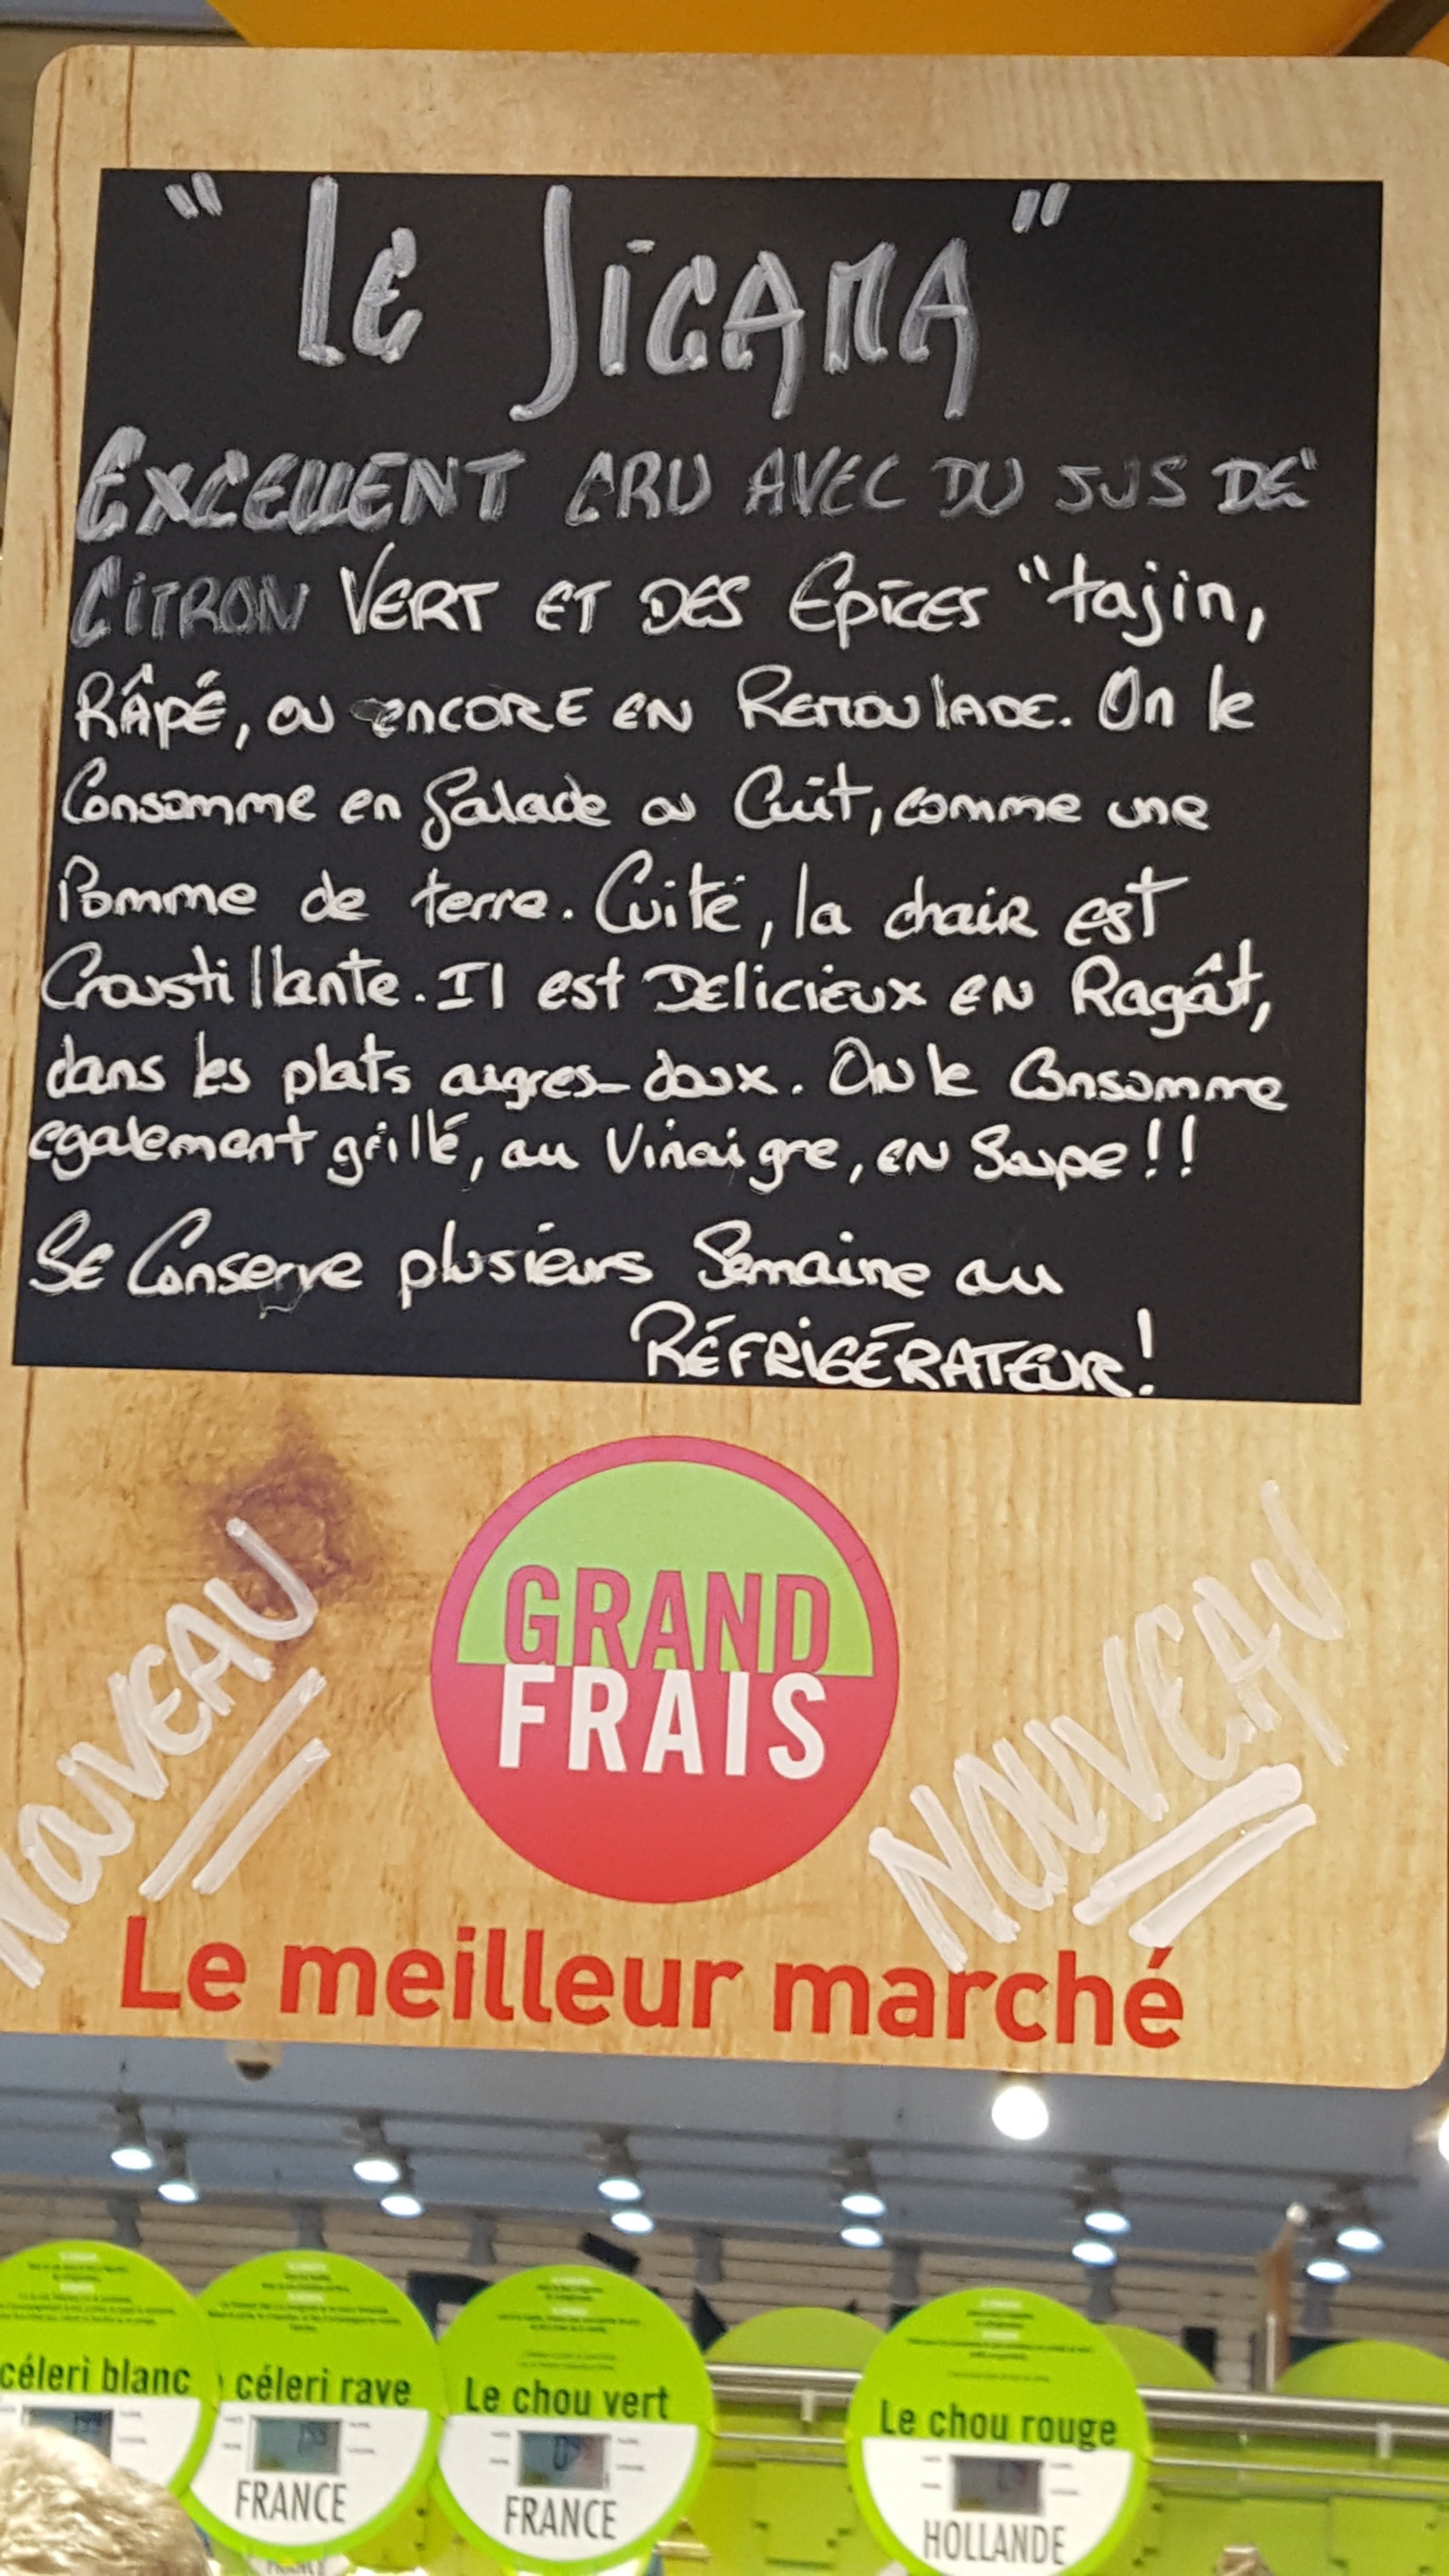 "Le Jicama"
EXCELLENT CRU AVEC DU JUS DE
CITRON VERT ET DES Épices "tajin,
RÂPÉ, ou encore EN Remoulade. On le
Consomme en Salade ou Cuit, comme une
Pomme de terre. Cuite, la chair est
Croustillante. Il est Delicieux en Ragôut,
dans les plats aigres-doux. On le Consomme
egalement grillé, au Vinaigre, en Soupe!!
Se Conserve plusieurs Semaine au
RÉFRIGÉRATEUR!
NOUVEAU
GRAND
FRAIS
NOUVEAU
Le meilleur marché
céleri blanc
céleri rave
FRANCE
Le chou vert
FRANCE
Le chou rouge
HOLLANDE